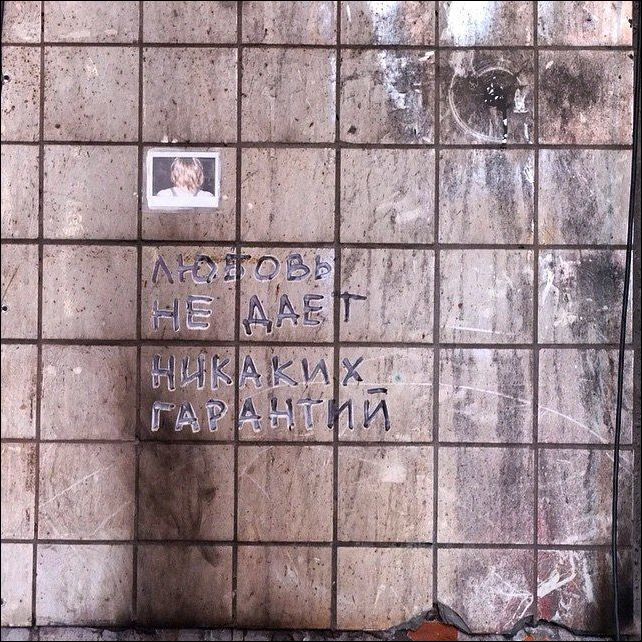 ЛЮБОВЬ
НЕ ДАЕТ
НИКАКИХ
ГАРАНТИЙ